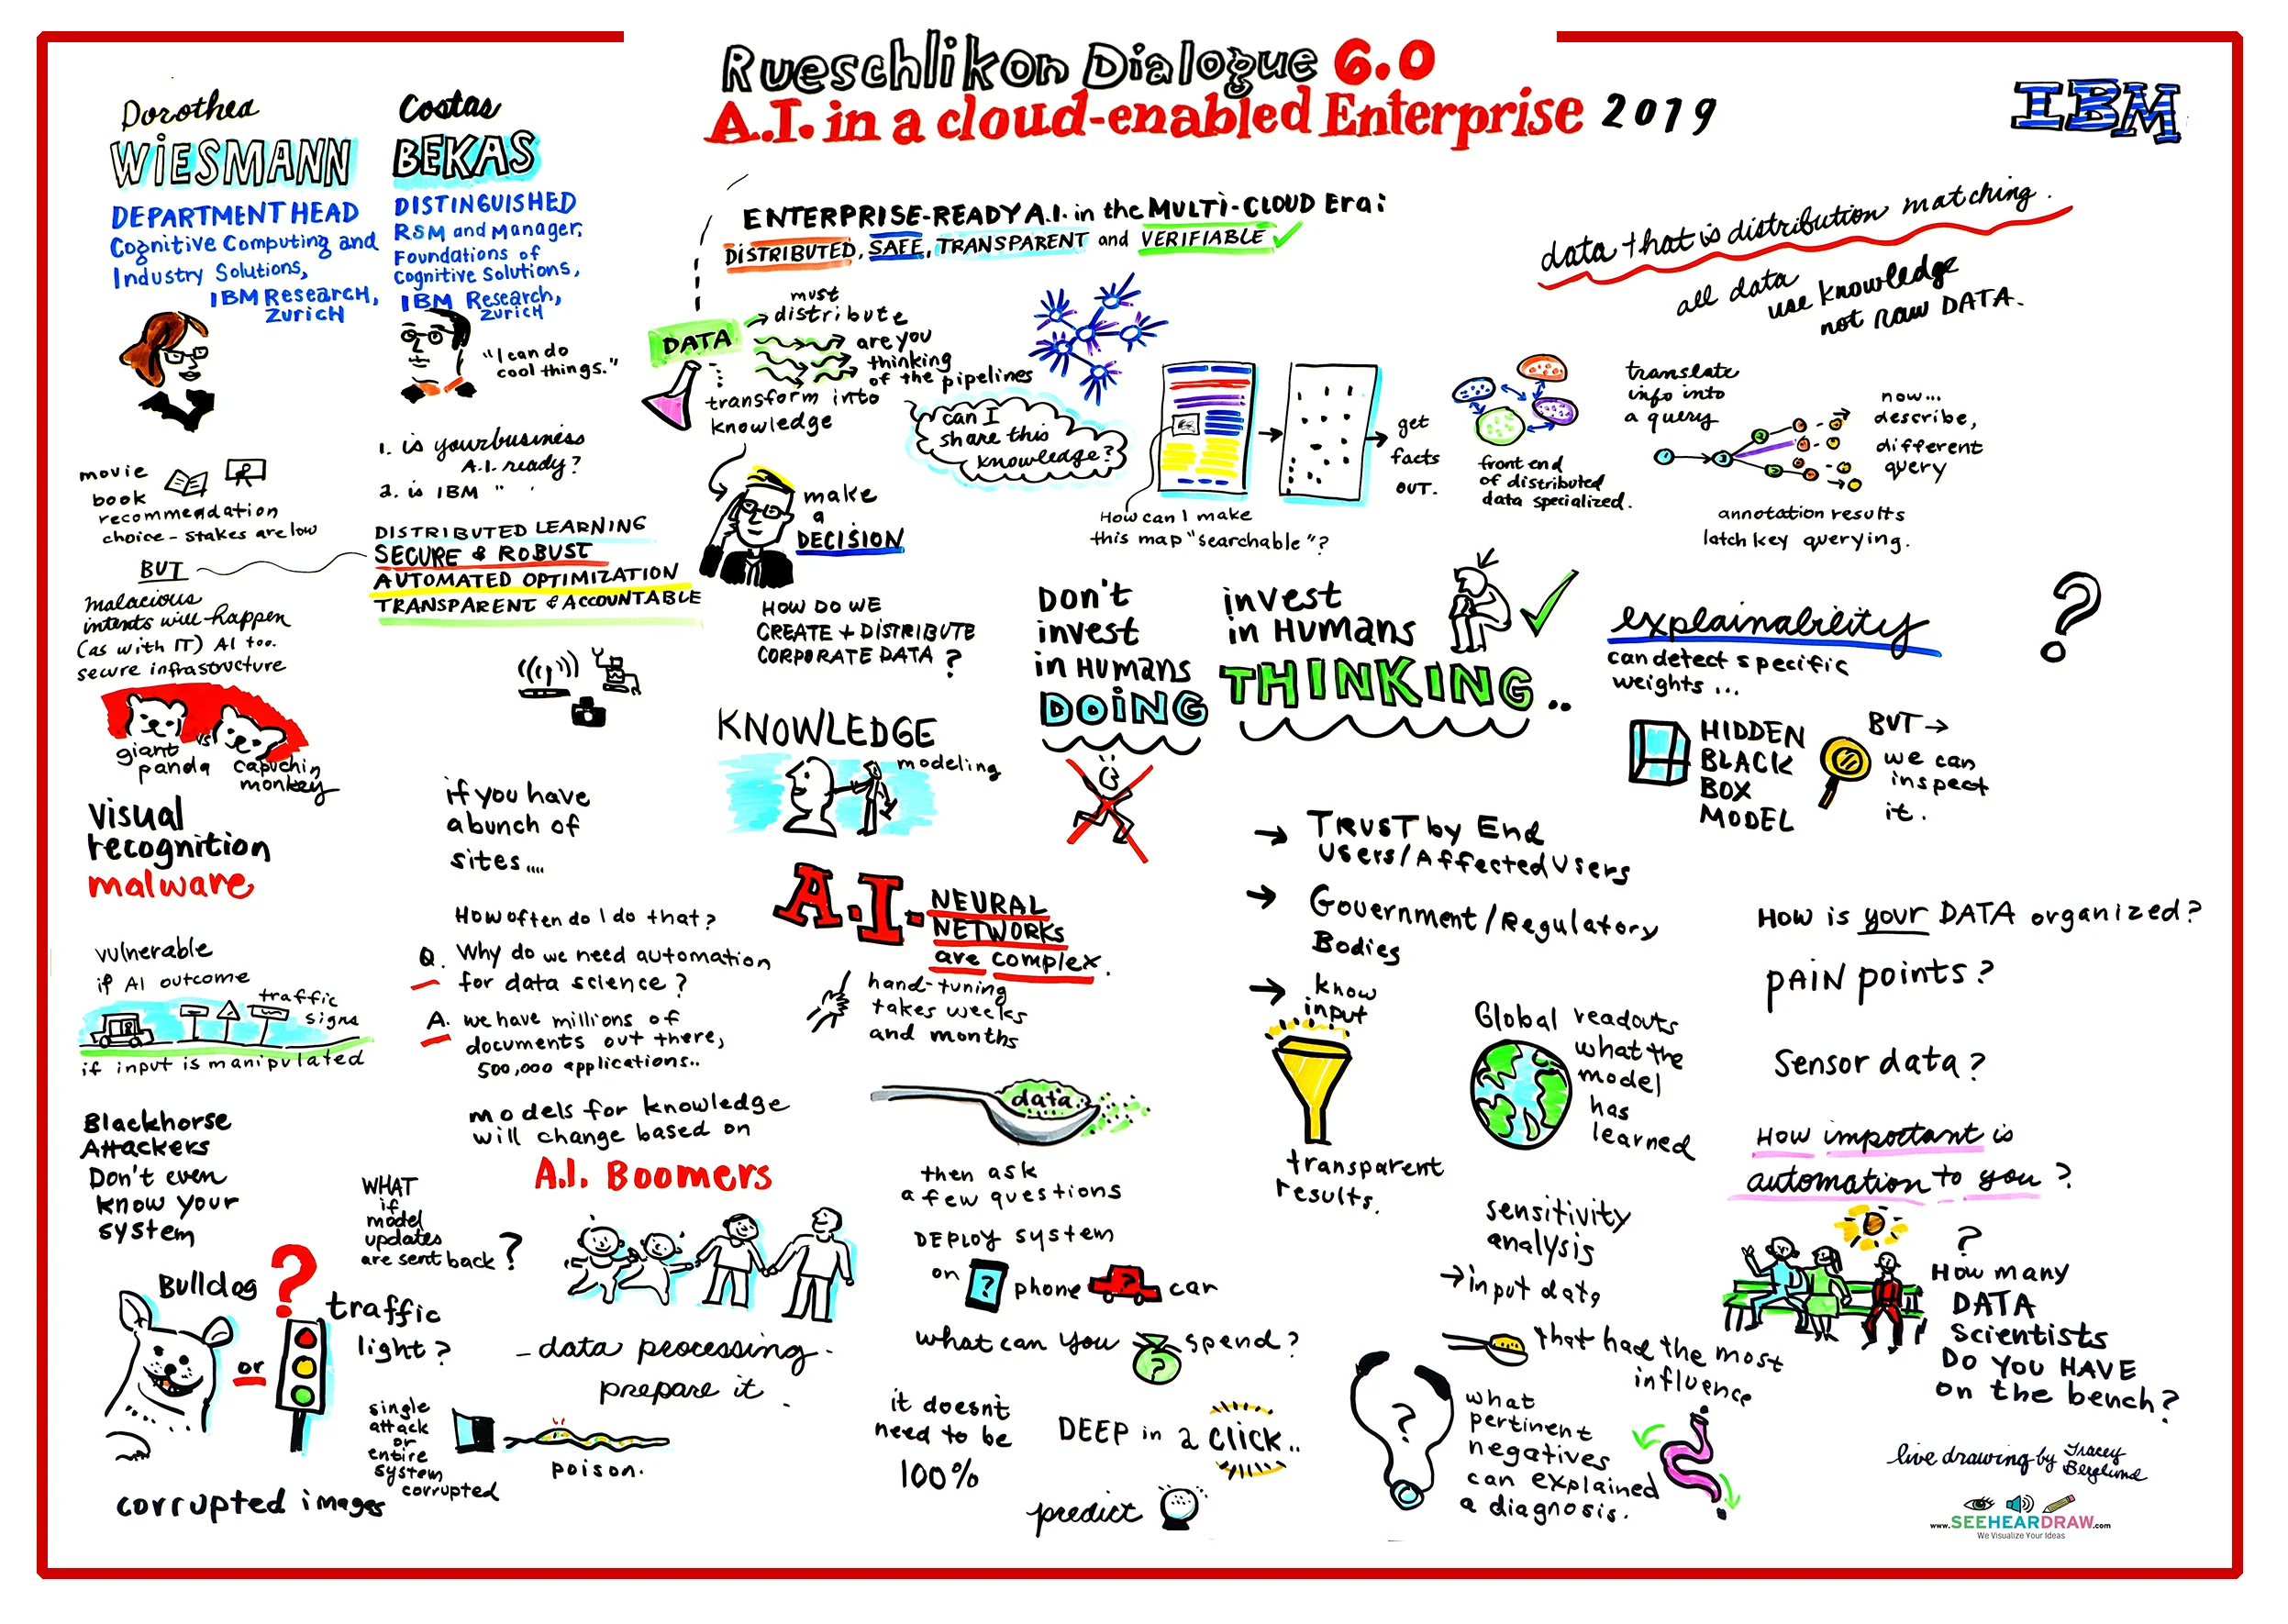 Rueschlikon Dialogue 6.0
A.I. in a cloud-enabled Enterprise 2019
IBM
Dorothea
WIESMANN
DEPARTMENT HEAD
Cognitive Computing and
Industry Solutions,
IBM Research,
Zurich
Costas
BEKAS
DISTINGUISHED
RSM and Manager,
Foundations of
Cognitive Solutions,
IBM Research,
Zurich
"I can do
cool things."
1. is your business
A.I. ready?
2. is IBM " "
movie
book
recommendation
choice - stakes are low
BUT
malacious
intents will happen
(as with IT) AI too.
secure infrastructure
DISTRIBUTED LEARNING
SECURE & ROBUST
AUTOMATED OPTIMIZATION
TRANSPARENT & ACCOUNTABLE
giant
panda
vs
capuchin
monkey
visual
recognition
malware
vulnerable
if AI outcome
traffic
signs
if input is manipulated
Blackhorse
Attackers
Don't even
know your
system
Bulldog
or
?
traffic
light?
corrupted images
WHAT
if
model
updates
are sent back ?
single
attack
or
entire
system
corrupted
poison.
if you have
a bunch of
sites....
How often do I do that?
Q. Why do we need automation
for data science?
A. we have millions of
documents out there,
500,000 applications..
models for knowledge
will change based on
A.I. Boomers
- data processing -
prepare it.
ENTERPRISE-READY A.I. in the MULTI-CLOUD Era:
DISTRIBUTED, SAFE, TRANSPARENT and VERIFIABLE
DATA
must
distribute
are you
thinking
of the pipelines
transform into
knowledge
can I
share this
knowledge?
make
a
DECISION
HOW DO WE
CREATE + DISTRIBUTE
CORPORATE DATA ?
KNOWLEDGE
modeling
A.I.
NEURAL
NETWORKS
are complex.
hand-tuning
takes weeks
and months
data
then ask
a few questions
DEPLOY system
on ? phone ? car
what can you ? spend?
it doesn't
need to be
100%
DEEP in a click..
predict
How can I make
this map "searchable"?
get
facts
OUT.
front end
of distributed
data specialized.
Don't
invest
in Humans
DOING
invest
in Humans
THINKING..
→ TRUST by End
Users/Affected Users
→ Government/Regulatory
Bodies
→ know
input
transparent
results.
Global readouts
what the
model
has
learned
sensitivity
analysis
→ input data
that had the most
influence
?
what
pertinent
negatives
can explained
a diagnosis.
data that is distribution matching.
all data
use knowledge
not raw DATA.
translate
info into
a query
1
2
now...
describe,
different
query
annotation results
latch key querying.
explainability
can detect specific
weights ...
?
HIDDEN
BLACK
BOX
MODEL
BUT →
we can
inspect
it.
How is your DATA organized?
PAIN points?
Sensor data?
How important is
automation to you ?
?
How many
DATA
Scientists
DO YOU HAVE
on the bench?
live drawing by Tracey
Berglund
www.SEEHEARDRAW.com
We Visualize Your Ideas